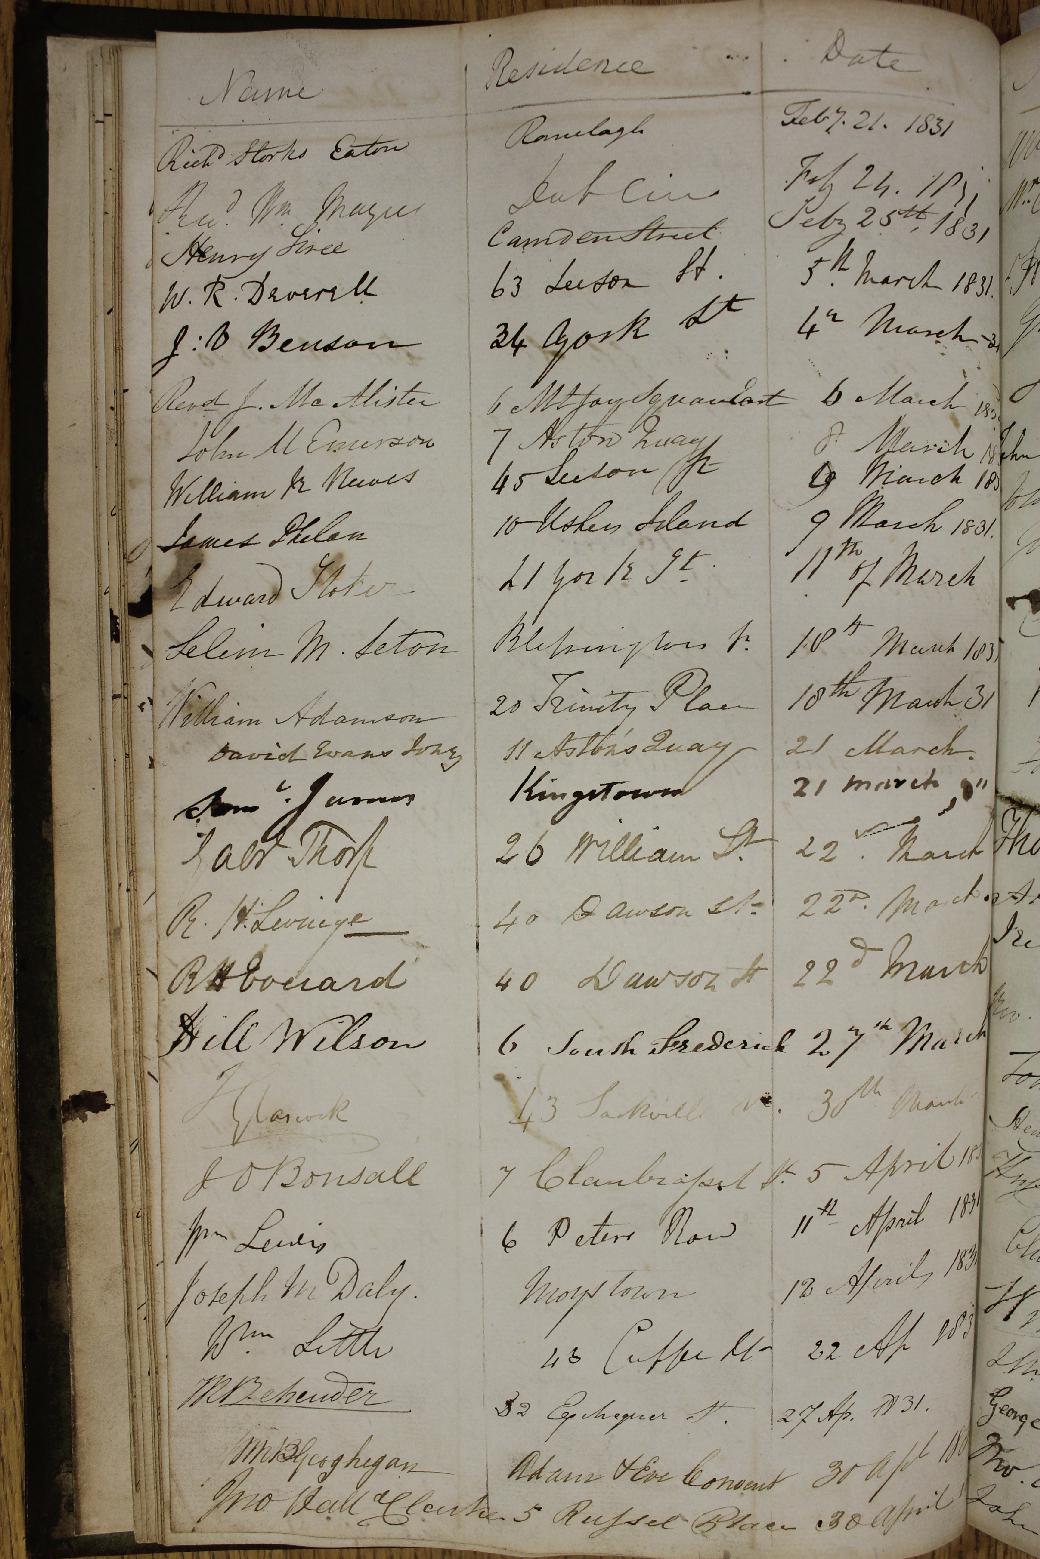 Name Residence Date
Richd Storks Eaton Ranelagh Feby. 21. 1831
Revd Wm Magee Dublin Feby 24. 1831
Henry Siree Camden Street Feby 25th, 1831
W. R. Deverell 63 Leeson St. 5th. March 1831.
J: B Benson 34 York St 4th March
Revd J. McAlister 6 Mtjoy Square East 6 March 183
John M Emerson 7 Aston Quay 8 March 18
William H Neves 45 Leeson St 9 March 183
James Phelan 10 Ushers Island 9 March 1831.
Edward Stoker 21 York St. 11th of March
Selim M. Seton Blessington St. 18th March 183
William Adamson 20 Trinity Place 18th March 31
David Evans Jones 11 Aston's Quay 21 March.
Kingstown 21 March, "
Thorp 26 William St. 22d. March
R. H. Levinge 40 Dawson St. 22d. March
RH Everard 40 Dawson St 22d March
Hill Wilson 6 South Frederick 27th March
43 Sackville St. 30th March
J O Bonsall 7 Clanbrassil St. 5 April 183
Wm Lewis 6 Peters Row 11th April 1831
Joseph M Daly. Moystown 12 April, 183
Wm Little 43 Cuffe St 22 Ap 183
32 Exchequer St. 27 Ap. 1831.
Geoghegan Adam & Eve Convent 30 Apl 18
Jno Hall Clarke 5 Russel Place 30 April